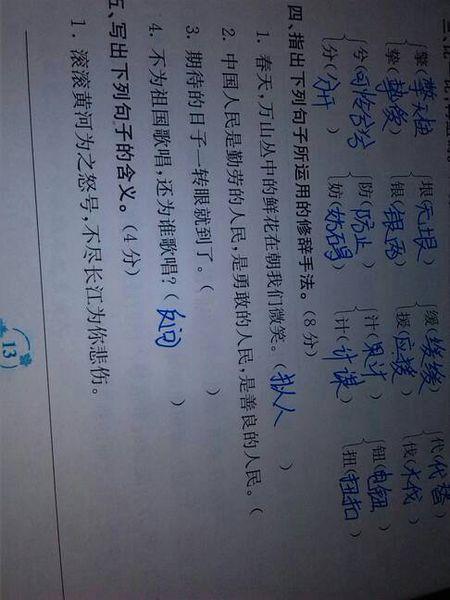 擎(擎天柱) 垠(无垠) 缓(缓缓) 代(代替)
挚( ) 银(银两) 援(应援) 伐(木伐)
兮(可怜兮兮) 防(防止) 汁(果汁) 钮(电钮)
分(分开) 妨(妨碍) 计(计谋) 扭(扭扣)
四、指出下列句子所运用的修辞手法。(8分)
1. 春天,万山丛中的鲜花在朝我们微笑。(拟人)
2. 中国人民是勤劳的人民,是勇敢的人民,是善良的人民。(
)
3. 期待的日子一转眼就到了。( )
4. 不为祖国歌唱,还为谁歌唱?(反问)
五、写出下列句子的含义。(4分)
1. 滚滚黄河为之怒号,不尽长江为你悲伤。
13